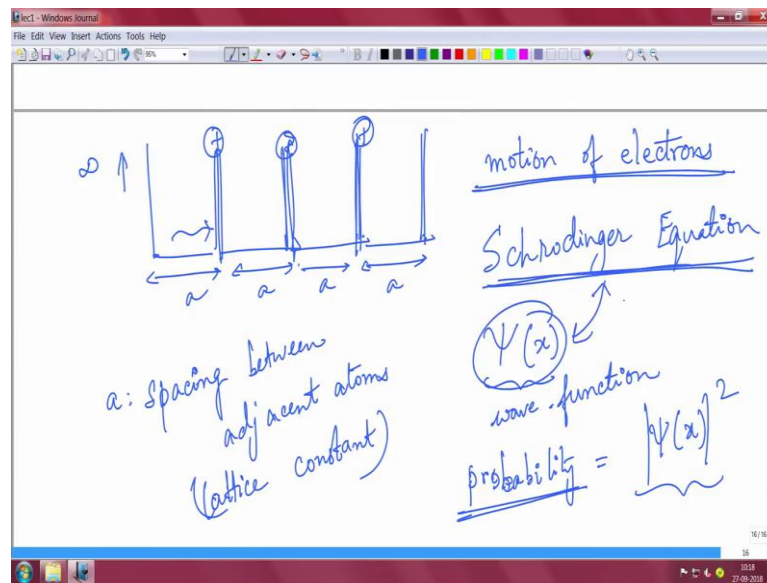 lec1 - Windows Journal
File Edit View Insert Actions Tools Help
95%
B I
∞ ↑
+
+
a a a a
a: Spacing between
adjacent atoms
(lattice constant)
motion of electrons
Schrodinger Equation
Ψ(x)
wave function
probability = |Ψ(x)|²
16/16
16
10:18
27-09-2018